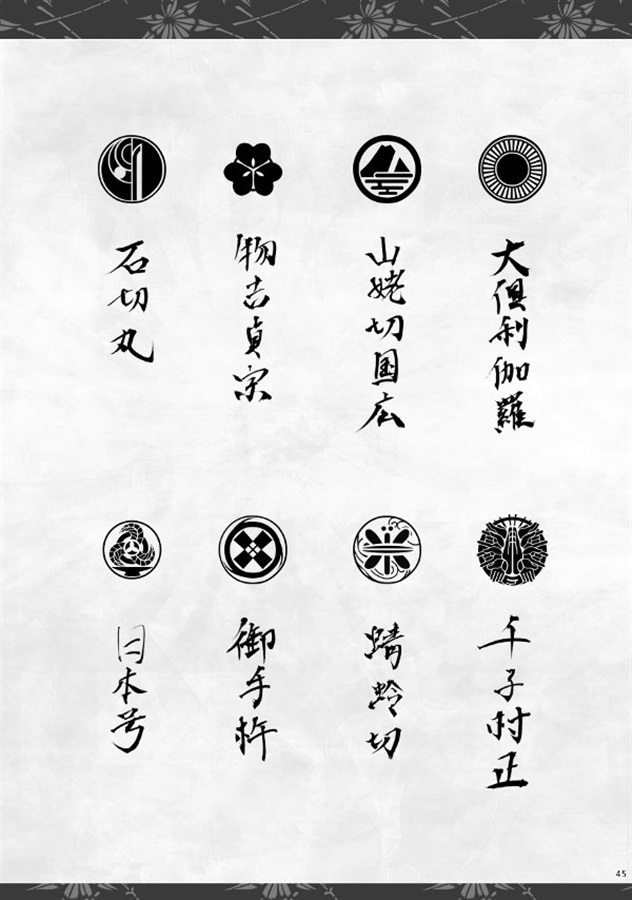 大倶利伽羅
山姥切国広
物吉貞宗
石切丸
千子村正
蜻蛉切
御手杵
日本号
45